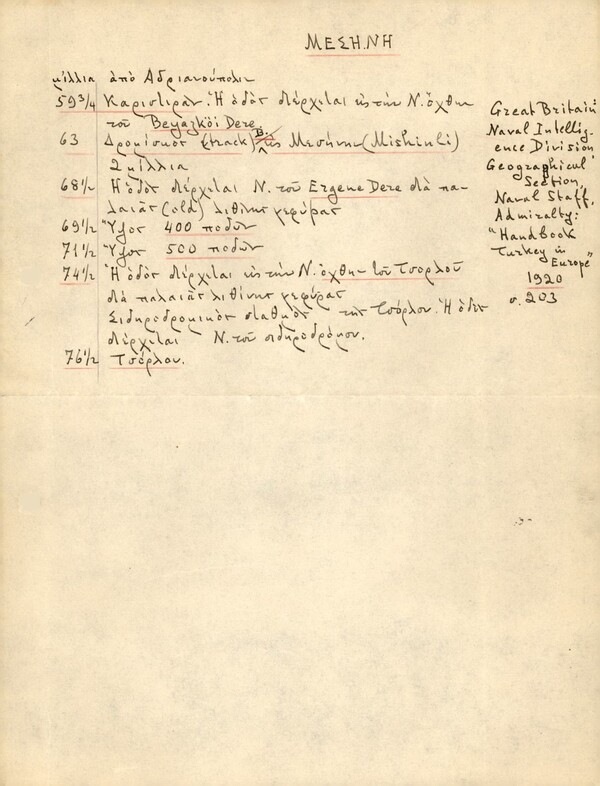 ΜΕΣΗΝΗ
μίλλια ἀπὸ Ἀδριανούπολιν
59 3/4 Καριστιράν. Ἡ ὁδὸς διέρχεται εἰς τὴν Ν. ὄχθην
τοῦ Beyazköi Dere.
63 Δρομίσκος (track) Β. εἰς Μεσήνην (Mishinli)
2 μίλλια
68 1/2 Ἡ ὁδὸς διέρχεται Ν. τοῦ Ergene Dere διὰ πα-
λαιᾶς (old) λιθίνης γεφύρας
69 1/2 Ὕψος 400 ποδῶν
71 1/2 Ὕψος 500 ποδῶν
74 1/2 Ἡ ὁδὸς διέρχεται εἰς τὴν Ν. ὄχθην τοῦ Τσορλοῦ
διὰ παλαιᾶς λιθίνης γεφύρας
Σιδηροδρομικὸς σταθμὸς τῆς Τσόρλου. Ἡ ὁδὸς
διέρχεται Ν. τοῦ σιδηροδρόμου.
76 1/2 Τσόρλου.
Great Britain:
Naval Intellig-
ence Division
Geographical
Section,
Naval Staff,
Admiralty:
"Handbook
Turkey in
Europe"
1920
σ. 203